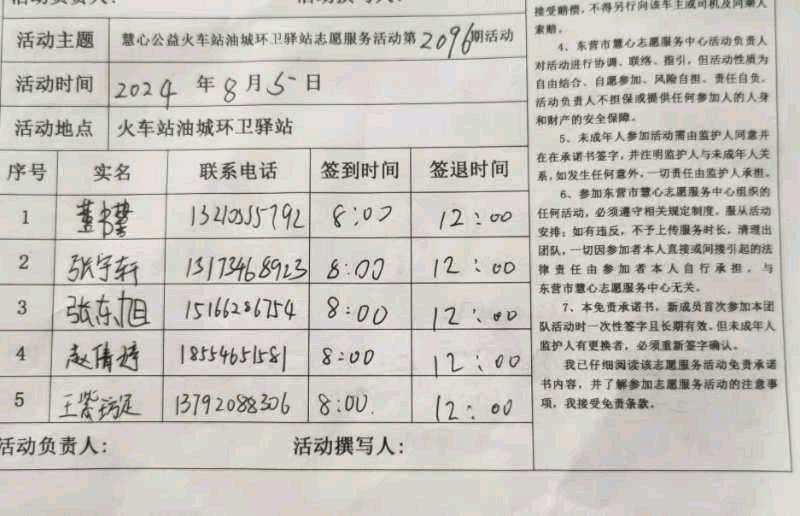 活动主题 慧心公益火车站油城环卫驿站志愿服务活动第2096期活动
活动时间 2024 年 8 月 5 日
活动地点 火车站油城环卫驿站
序号 实名 联系电话 签到时间 签退时间
1 董书馨 13210555792 8:00 12:00
2 张宇轩 13173468923 8:00 12:00
3 张东旭 15166286754 8:00 12:00
4 赵倩婷 18554651581 8:00 12:00
5 王紫 13792088306 8:00 12:00
活动负责人: 活动撰写人:
接受赔偿，不得另行向该车主或司机及同乘人
索赔。
4、东营市慧心志愿服务中心活动负责人
对活动进行协调、联络、指引，但活动性质为
自由结合、自愿参加、风险自担、责任自负。
活动负责人不担保或提供任何参加人的人身
和财产的安全保障。
5、未成年人参加活动需由监护人同意并
在在承诺书签字，并注明监护人与未成年人关
系，如发生任何意外，一切责任由监护人承担。
6、参加东营市慧心志愿服务中心组织的
任何活动，必须遵守相关规定制度，服从活动
安排；如有违反，不予上传服务时长，清理出
团队，一切因参加者本人直接或间接引起的法
律责任由参加者本人自行承担，与
东营市慧心志愿服务中心无关。
7、本免责承诺书，新成员首次参加本团
队活动时一次性签字且长期有效。但未成年人
监护人有更换者，必须重新签字确认。
我已仔细阅读该志愿服务活动免责承诺
书内容，并了解参加志愿服务活动的注意事
项，我接受免责条款。